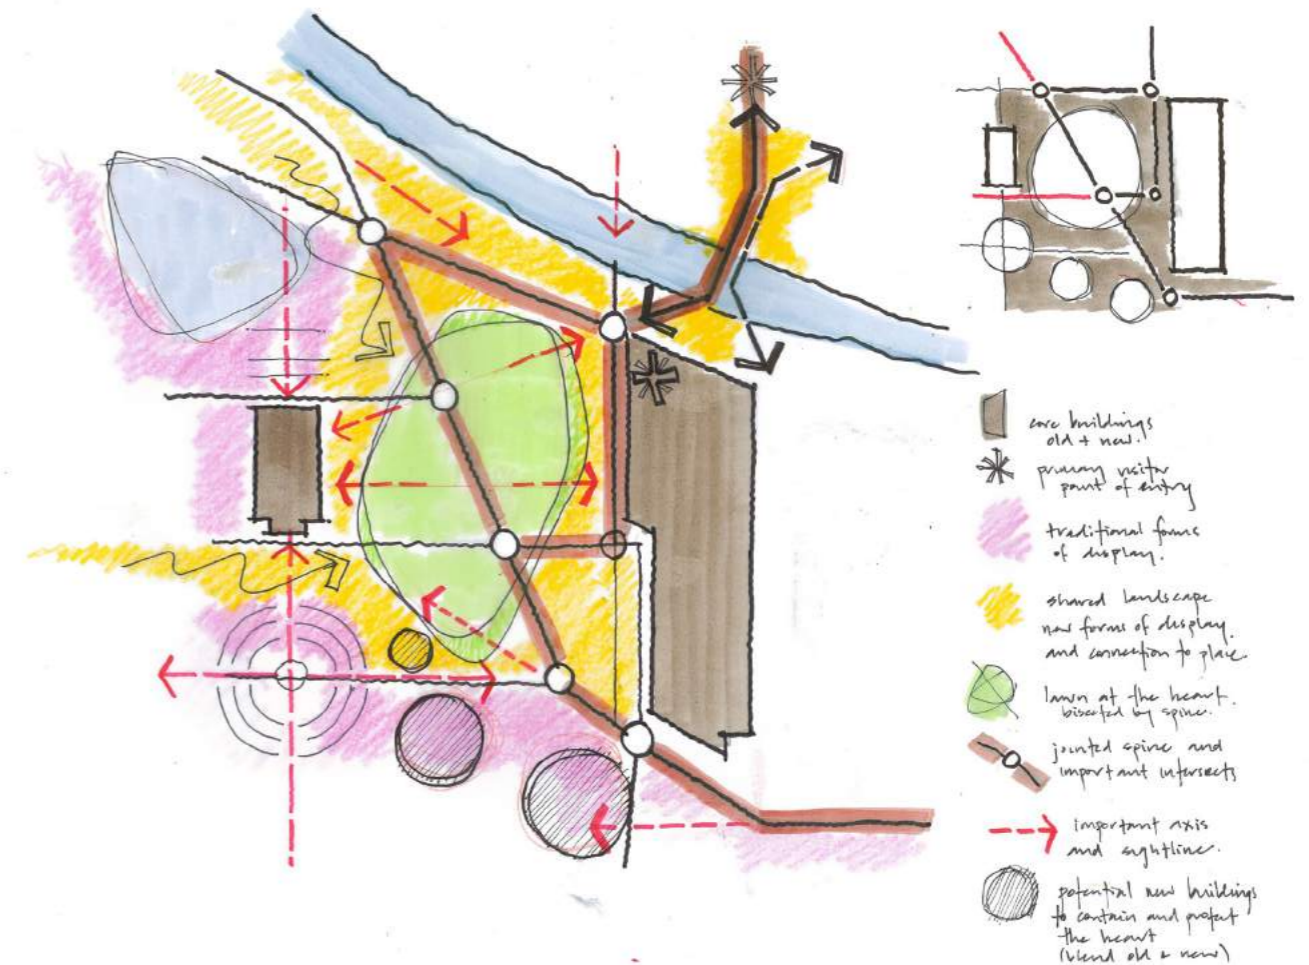 core buildings
old + new.
primary visitor
point of entry
traditional forms
of display.
shared landscape
new forms of display.
and connection to place.
lawn at the heart.
bisected by spine.
jointed spine and
important intersects
important axis
and sightline.
potential new buildings
to contain and protect
the heart
(blend old & new)